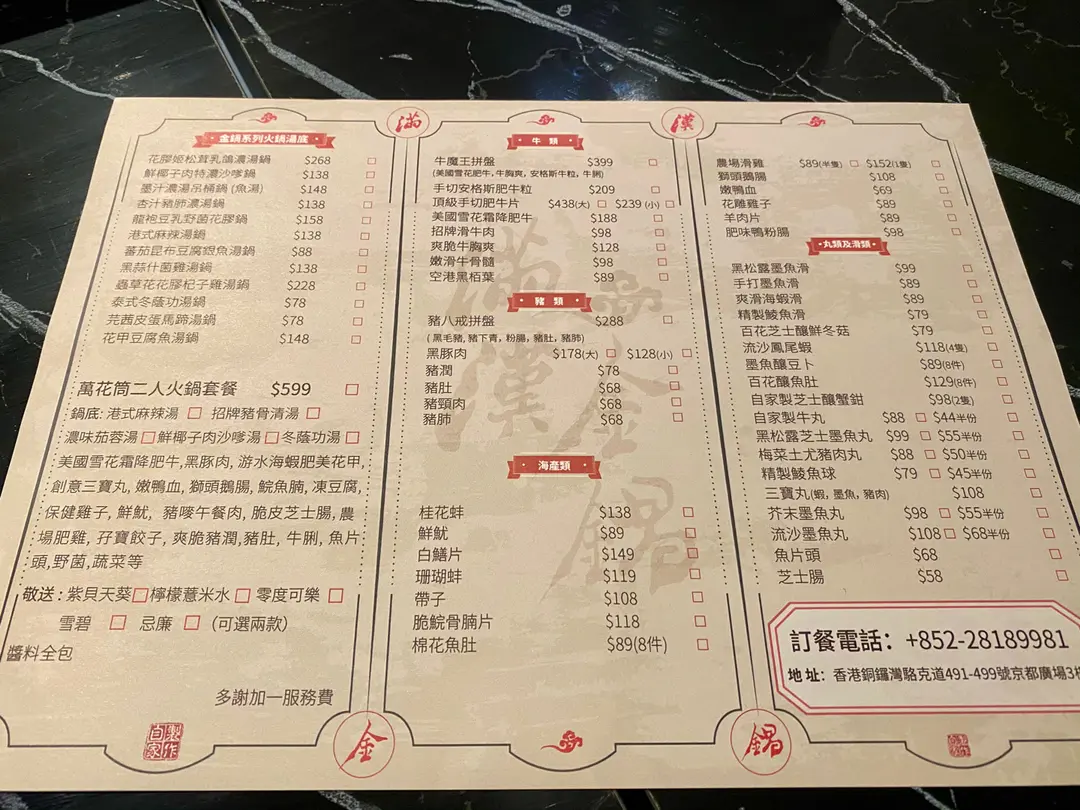 滿
漢
金鍋系列火鍋湯底
花膠姬松茸乳鴿濃湯鍋 $268
鮮椰子肉特濃沙嗲鍋 $138
墨汁濃湯吊桶鍋 (魚湯) $148
杏汁豬肺濃湯鍋 $138
龍袍豆乳野菌花膠鍋 $158
港式麻辣湯鍋 $138
蕃茄昆布豆腐銀魚湯鍋 $88
黑蒜什菌雞湯鍋 $138
蟲草花花膠杞子雞湯鍋 $228
泰式冬蔭功湯鍋 $78
芫茜皮蛋馬蹄湯鍋 $78
花甲豆腐魚湯鍋 $148
萬花筒二人火鍋套餐 $599
鍋底: 港式麻辣湯 招牌豬骨清湯
濃味茄蓉湯 鮮椰子肉沙嗲湯 冬蔭功湯
美國雪花霜降肥牛,黑豚肉, 游水海蝦肥美花甲,
創意三寶丸, 嫩鴨血, 獅頭鵝腸, 鯇魚腩, 凍豆腐,
保健雞子, 鮮魷, 豬嘜午餐肉, 脆皮芝士腸, 農
場肥雞, 孖寶餃子, 爽脆豬潤,豬肚, 牛脷, 魚片
頭,野菌,蔬菜等
敬送 : 紫貝天葵 檸檬薏米水 零度可樂
雪碧 忌廉 (可選兩款)
醬料全包
多謝加一服務費
百家製作
金
牛 類
牛魔王拼盤 $399
(美國雪花肥牛, 牛胸爽, 安格斯牛粒, 牛脷)
手切安格斯肥牛粒 $209
頂級手切肥牛片 $438(大) $239 (小)
美國雪花霜降肥牛 $188
招牌滑牛肉 $98
爽脆牛胸爽 $128
嫩滑牛骨髓 $98
空港黑栢葉 $89
豬 類
豬八戒拼盤 $288
( 黑毛豬, 豬下青, 粉腸, 豬肚, 豬肺)
黑豚肉 $178(大) $128(小)
豬潤 $78
豬肚 $68
豬頸肉 $68
豬肺 $68
海產類
桂花蚌 $138
鮮魷 $89
白鱔片 $149
珊瑚蚌 $119
帶子 $108
脆鯇骨腩片 $118
棉花魚肚 $89(8件)
滿漢金鍋
農場滑雞 $89(半隻) $152(1隻)
獅頭鵝腸 $108
嫩鴨血 $69
花雕雞子 $89
羊肉片 $89
肥味鴨粉腸 $98
·丸類及滑類·
黑松露墨魚滑 $99
手打墨魚滑 $89
爽滑海蝦滑 $89
精製鯪魚滑 $79
百花芝士釀鮮冬菇 $79
流沙鳳尾蝦 $118(4隻)
墨魚釀豆卜 $89(8件)
百花釀魚肚 $129(8件)
自家製芝士釀蟹鉗 $98(2隻)
自家製牛丸 $88 $44半份
黑松露芝士墨魚丸 $99 $55半份
梅菜土尤豬肉丸 $88 $50半份
精製鯪魚球 $79 $45半份
三寶丸(蝦, 墨魚, 豬肉) $108
芥末墨魚丸 $98 $55半份
流沙墨魚丸 $108 $68半份
魚片頭 $68
芝士腸 $58
訂餐電話： +852-28189981
地 址： 香港銅鑼灣駱克道491-499號京都廣場3樓
鍋